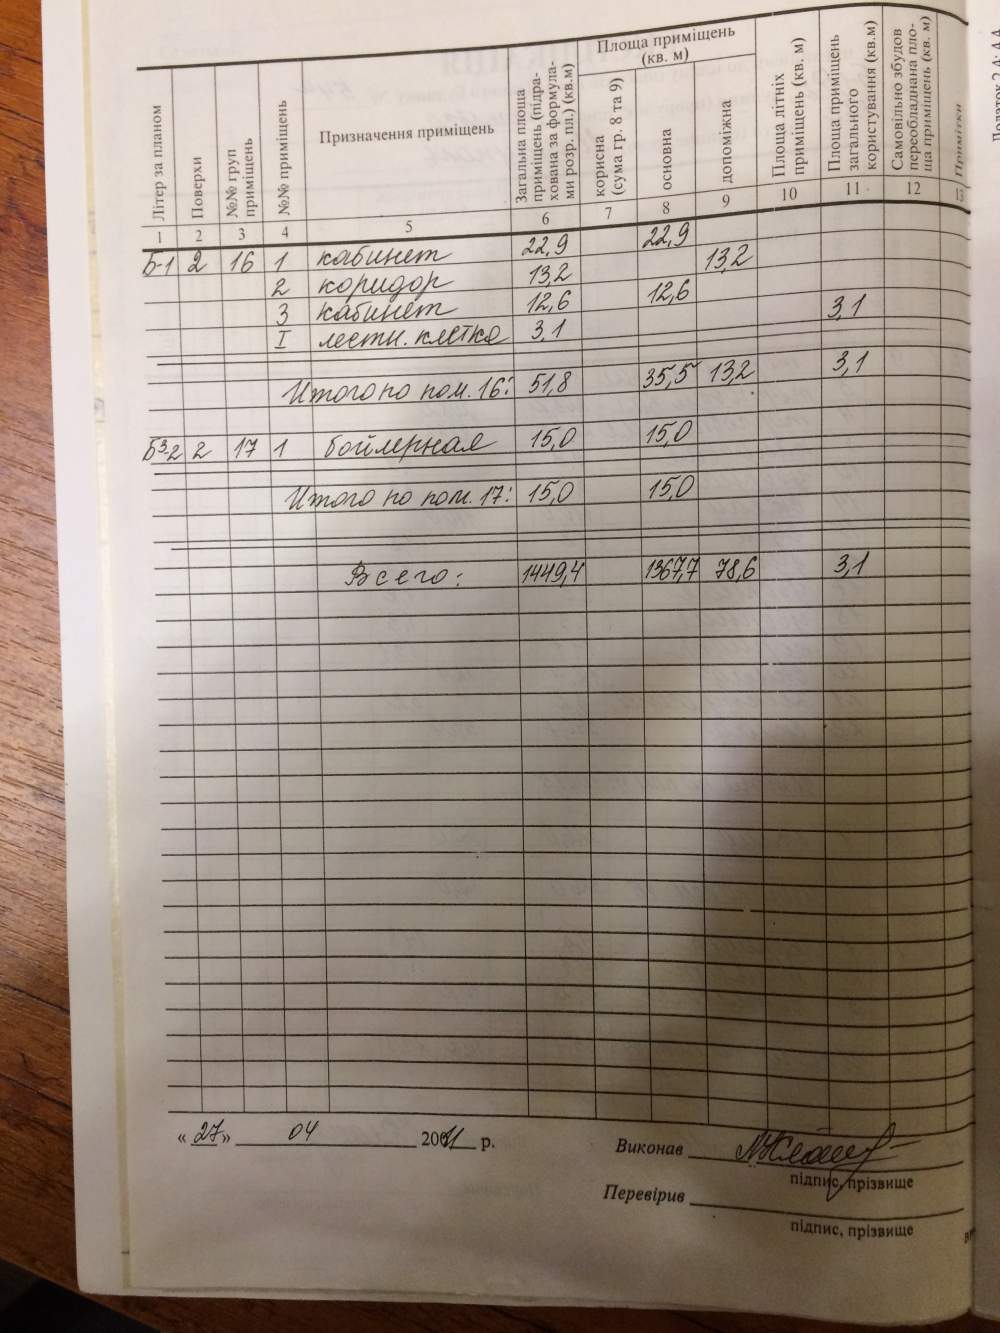 Літер за планом
Поверхи
№№ груп приміщень
№№ приміщень
Призначення приміщень
Загальна площа приміщень (підра-
хована за формула-
ми розр. пл.) (кв.м)
Площа приміщень
(кв. м)
корисна
(сума гр. 8 та 9)
основна
допоміжна
Площа літніх
приміщень (кв. м)
Площа приміщень
загального
користування (кв.м)
Самовільно збудов
переобладнана пло-
ща приміщень (кв. м)
Примітки
1 2 3 4 5 6 7 8 9 10 11 12 13
Б-1 2 16 1 кабинет 22,9 22,9
2 коридор 13,2 13,2
3 кабинет 12,6 12,6
I лестн. клетка 3,1 3,1
Итого по пом. 16: 51,8 35,5 13,2 3,1
Б³-2 2 17 1 бойлерная 15,0 15,0
Итого по пом. 17: 15,0 15,0
Всего: 1449,4 1367,7 78,6 3,1
« 27 » 04 2011 р.
Виконав
підпис, прізвище
Перевірив
підпис, прізвище
Додаток 2.4; 4.4